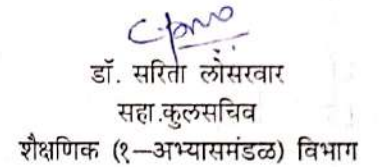 डॉ. सरिता लोसरवार
सहा.कुलसचिव
शैक्षणिक (१—अभ्यासमंडळ) विभाग